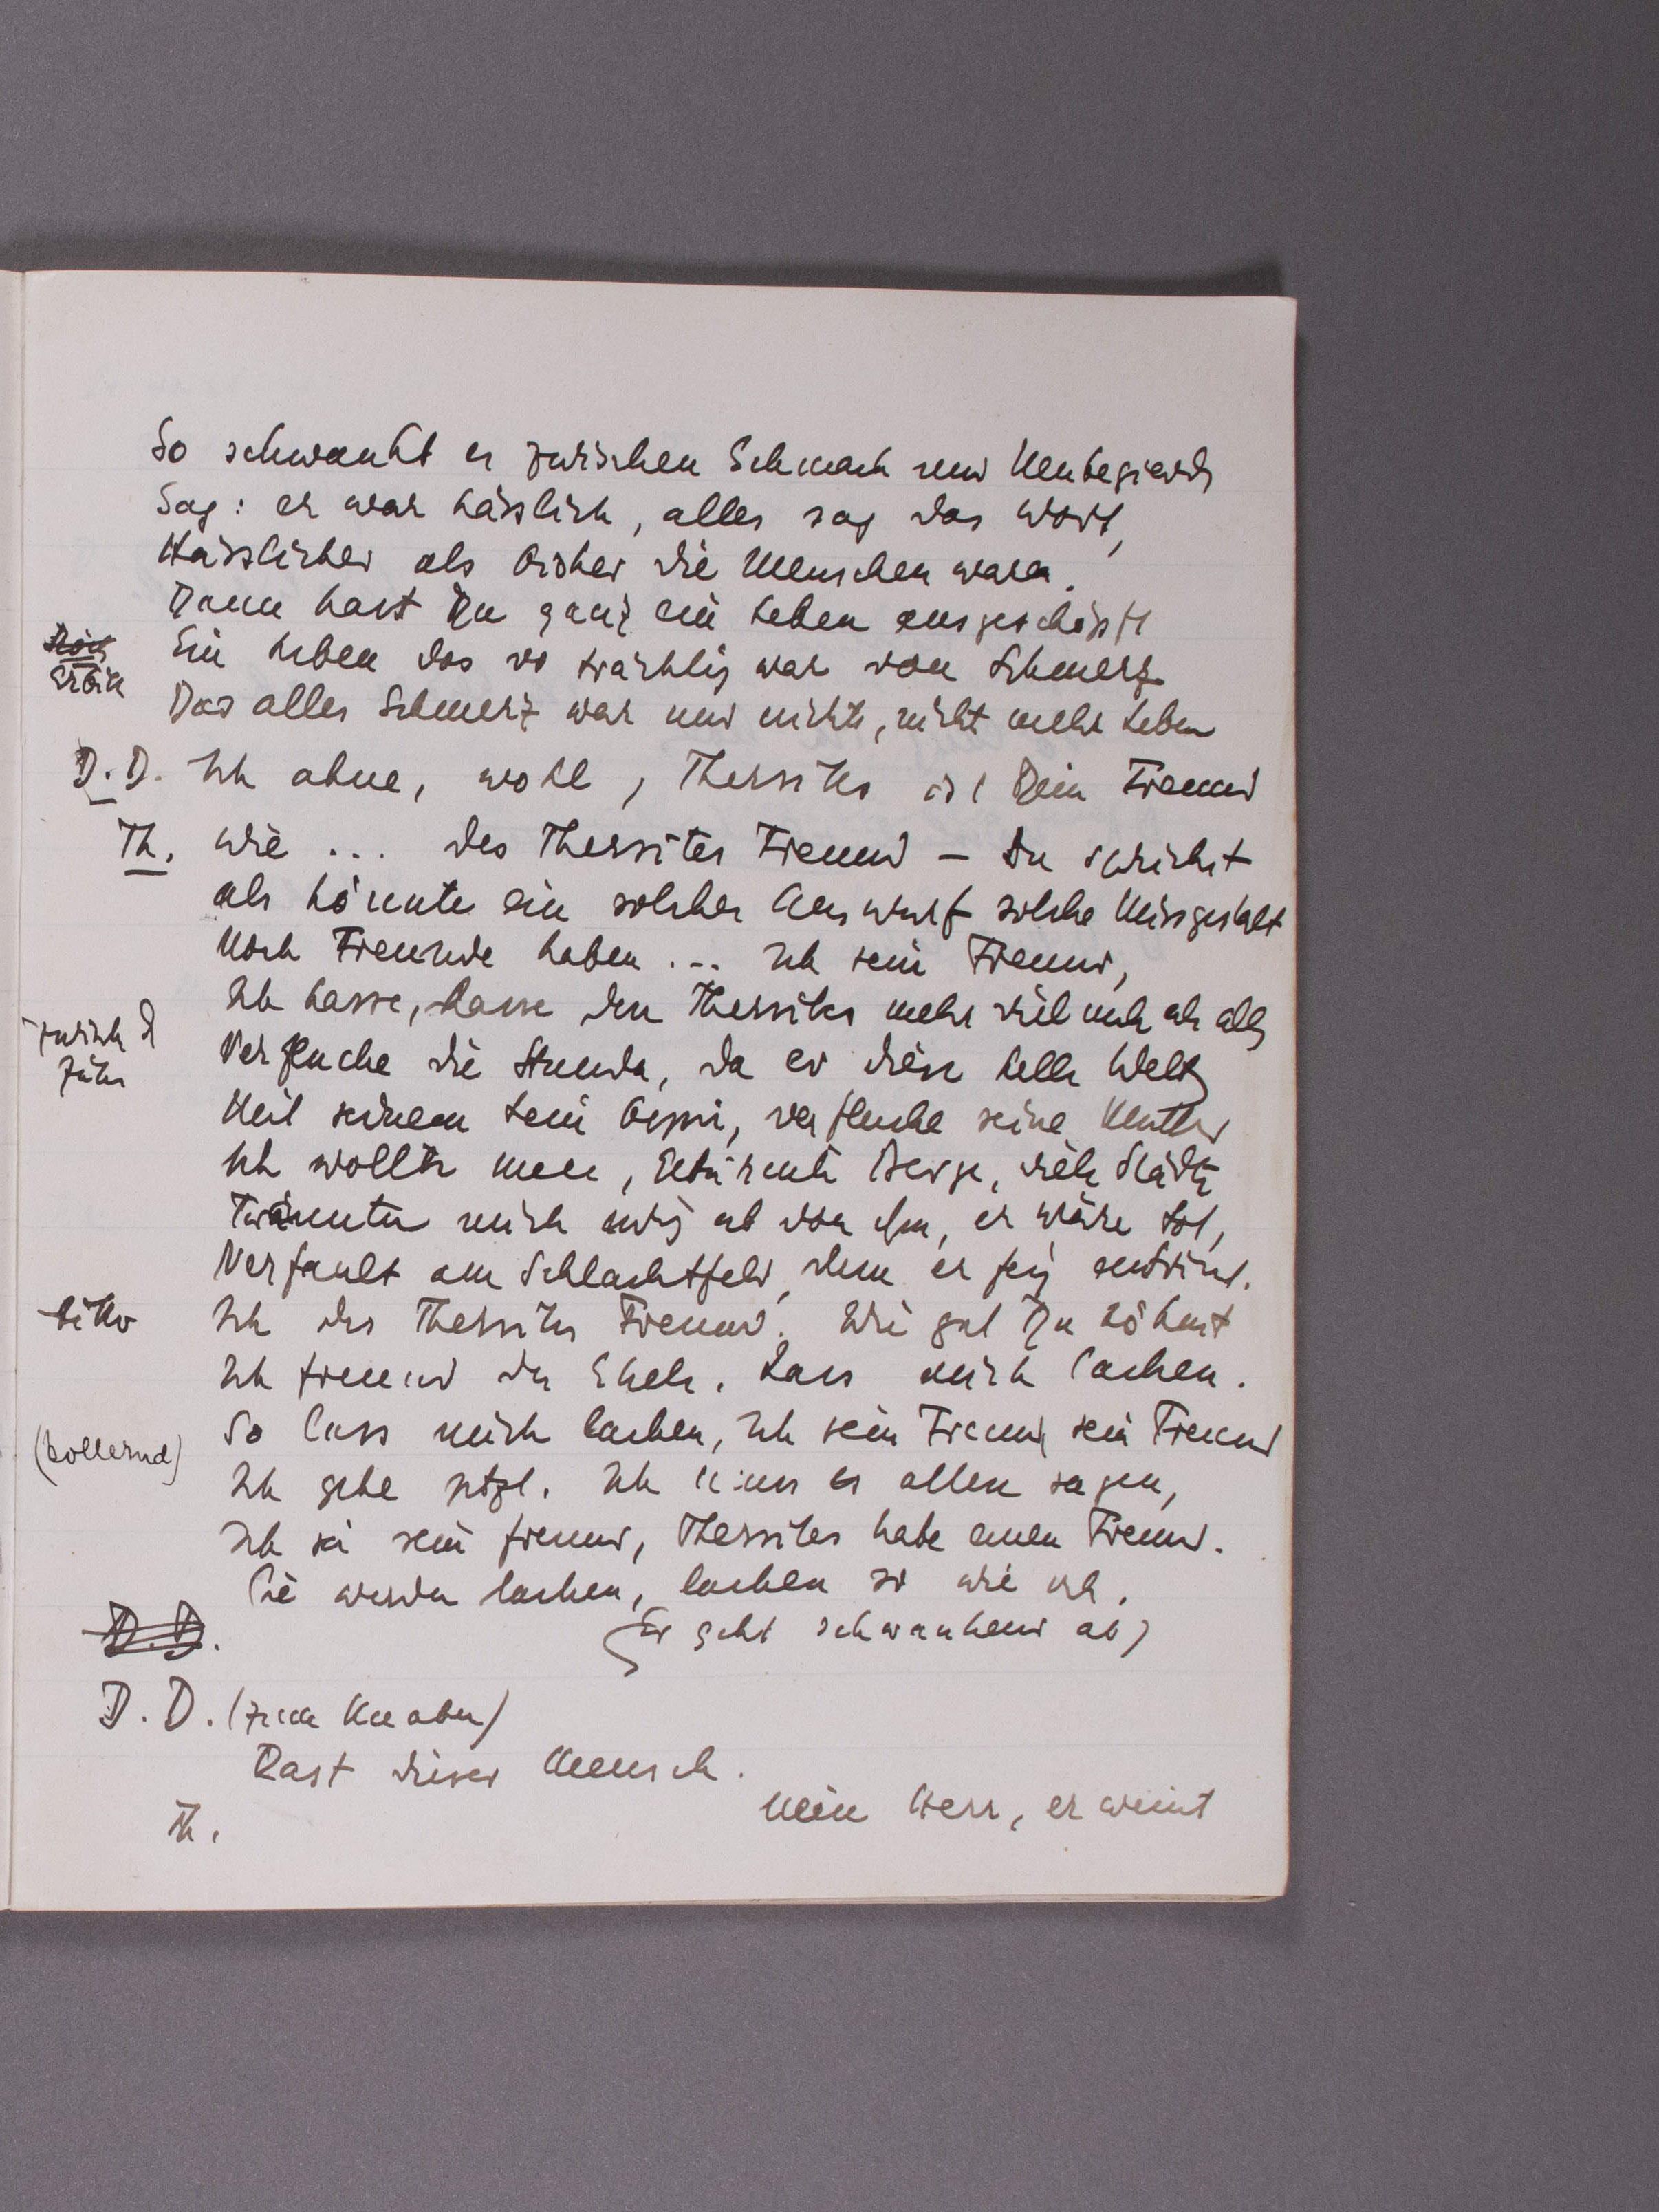 So schwankt er zwischen Schmach und Neubegierde
Sag: er war hässlich, alles sag das Wort,
Hässlicher als bisher die Menschen waren.
Dann hast Du ganz ein Leben ausgeschöpft
Ein Leben das so trächtig war von Schmerz
Das alles Schmerz war und nichts, nicht mehr Leben
D. D. Ich ahne, wohl, Thersites ist Dein Freund
Th. Wie ... des Thersites Freund – Du sprichst
als könnte ein solcher Auswurf solche Missgestalt
Noch Freunde haben ... Ich sein Freund,
Ich hasse, hasse den Thersites mehr viel mehr als alles
zwisch d
Zähn
Verfluche die Stunde, da er diese helle Welt
Mit seinem sein verfluche seine Mutter
Ich wollte Meere, Berge, viele Städte
Trännten mich ab von ihm, er wäre tot,
Verfault am Schlachtfeld, dem er feig entrinnt.
ditto
Ich des Thersites Freund. Wie gut Du höhnst
Ich Freund des Ekels. Lass mich lachen.
(kollernd)
So lass mich lachen, Ich sein Freund sein Freund
Ich gehe jetzt. Ich muss es allen sagen,
Ich sei sein Freund, Thersites habe einen Freund.
Sie werden lachen, lachen so wie ich.
D. D.
(Er geht schwankend ab)
D. D. (zum Knaben)
Rast dieser Mensch.
Th.
Nein Herr, er weint